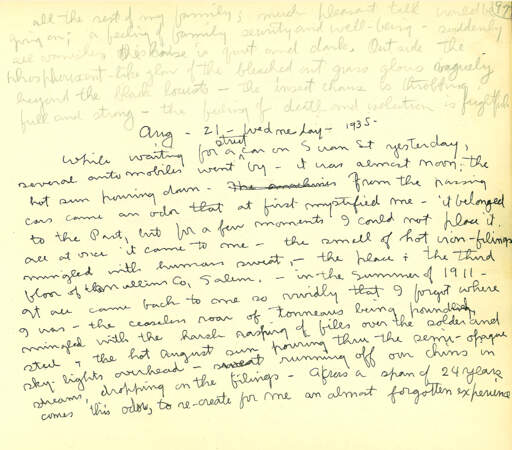 all the rest of my family; much pleasant talk would be
going on; a feeling of family security and well-being - suddenly
all vanishes The house is quiet and dark. Outside the
phosphorescent-like glow of the bleached out grass glows vaguely
beyond the black locusts - the insect chorus is throbbing
full and strong - the feeling of death and isolation is frightful
Aug - 21 - Wednesday - 1935 -
While waiting for a street car on Swan St yesterday,
several automobiles went by - it was almost noon; the
hot sun pouring down - The machines From the passing
cars came an odor that at first mystified me - it belonged
to the Past, but for a few moments I could not place it.
all at once it came to me - the smell of hot iron-filings
mingled with human sweat, - the place: the third
floor of the Mullins Co, Salem. - in the summer of 1911 -
It all came back to me so vividly that I forgot where
I was - the ceaseless roar of tonneaus being pounded,
mingled with the harsh rasping of files over the solder and
steel - the hot August sun pouring thru the semi-opaque
sky-lights overhead - sweat running off our chins in
streams, dropping on the filings - Across a span of 24 years
comes this odor, to re-create for me an almost forgotten experience